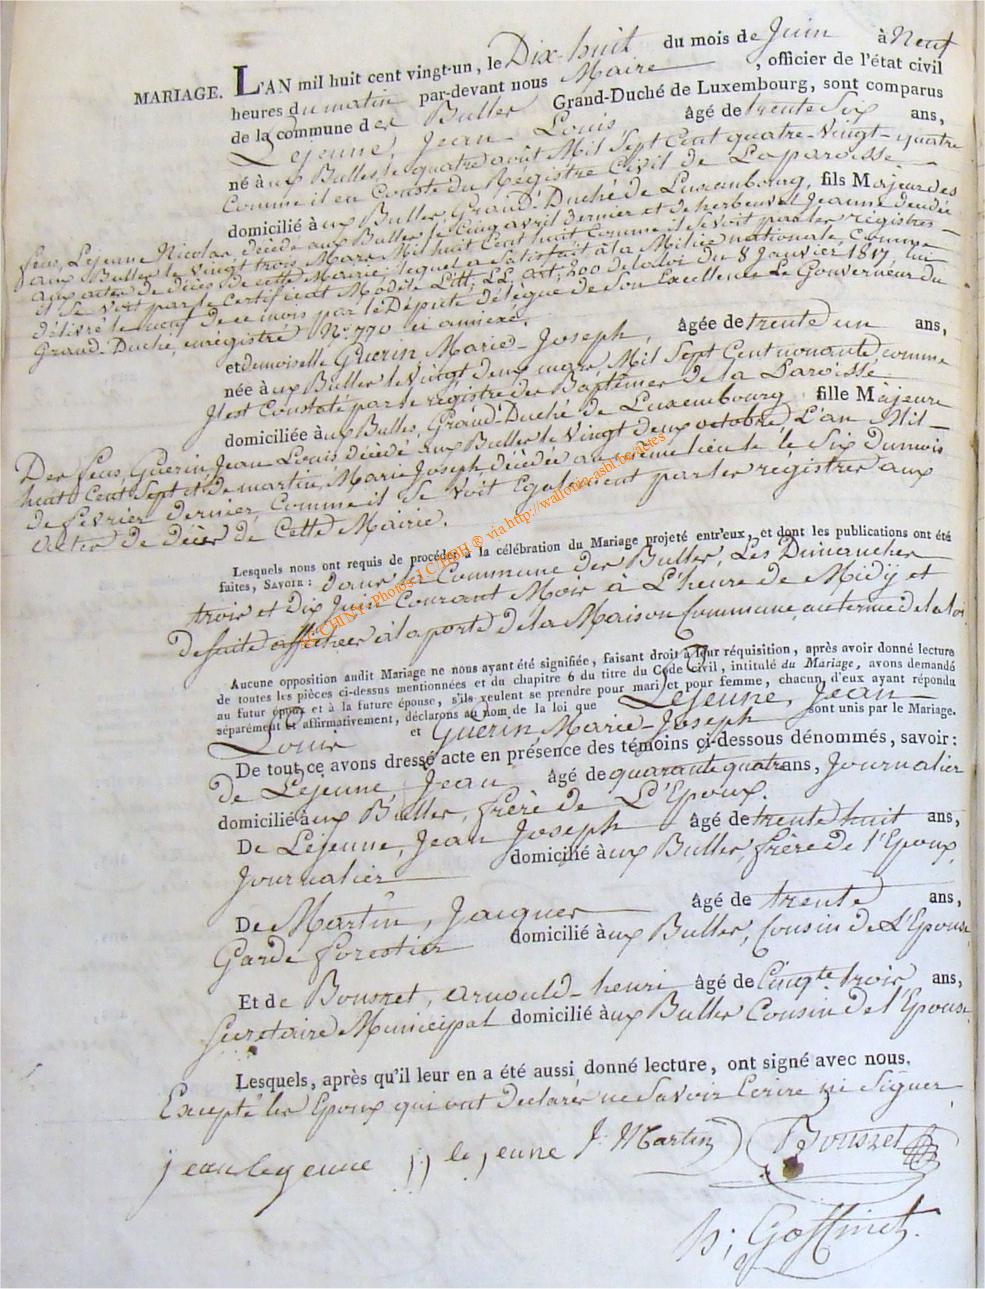 MARIAGE. L'AN mil huit cent vingt-un, le Dix-huit du mois de Juin à Neuf
heures du matin par-devant nous Maire, officier de l'état civil
de la commune des Bulles Grand-Duché de Luxembourg, sont comparus
Lejeune, Jean-Louis, âgé de trente Six ans,
né aux Bulles, le quatre août Mil Sept Cent quatre-vingt-quatre
Comme il en Conste du Registre Civil de La paroisse
domicilié aux Bulles, Grand-Duché de Luxembourg, fils Majeur des
feus, Lejeune Nicolas, décédé aux Bulles le Cinq avril dernier et de herbeuval Jeanne décédée
aux Bulles le vingt trois Mars Mil huit Cent huit Comme il se voit par les registres
aux actes de décès de cette Mairie; lequel a Satisfait à la Milice nationale, Comme
il se voit par le Certificat Modèle Litt; LL, art; 200 de la loi du 8 Janvier 1817, lui
délivré le neuf de ce mois par le Député délégué de Son Excellence Le Gouverneur du
Grand-Duché, enregistré N° 790 ci annexé.
et demoiselle Guerin Marie-Joseph, âgée de trente un ans,
née aux Bulles le Vingt deux mars Mil Sept Cent nonante comme
Il est Constaté par le registre des Baptêmes de la Paroisse
domiciliée aux Bulles, Grand-Duché de Luxembourg, fille Majeure
Des feus, Guerin, Jean Louis décédé aux Bulles le Vingt deux octobre L'an Mil-
huit Cent Sept et de martin, Marie Joseph décédée au même lieu le Six du mois
de fevrier dernier, Comme il se voit Egalement par les registres aux
actes de décès de Cette Mairie.
Lesquels nous ont requis de procéder à la célébration du Mariage projeté entr'eux, et dont les publications ont été
faites, SAVOIR: dans la Commune des Bulles, Les Dimanches
trois et dix Juin Courant Mois à L'heure de Midÿ et
de suite affichées à la porte de la Maison Commune, au terme de la loi.
Aucune opposition audit Mariage ne nous ayant été signifiée, faisant droit à leur réquisition, après avoir donné lecture
de toutes les pièces ci-dessus mentionnées et du chapitre 6 du titre du Code Civil, intitulé du Mariage, avons demandé
au futur époux et à la future épouse, s'ils veulent se prendre pour mari et pour femme, chacun d'eux ayant répondu
séparément et affirmativement, déclarons au nom de la loi que Lejeune, Jean
Louis et Guerin Marie-Joseph sont unis par le Mariage.
De tout ce avons dressé acte en présence des témoins ci-dessous dénommés, savoir:
De Lejeune Jean âgé de quarante quatre ans, Journalier
domicilié aux Bulles, frère de L'Epoux.
De Lejeune, Jean Joseph âgé de trente huit ans,
Journalier domicilié aux Bulles, frère de l'Epoux,
De Martin, Jacques âgé de trente ans,
Garde forestier domicilié aux Bulles, Cousin de L'Epouse
Et de Bousret, arnould-henri âgé de Cinqte trois ans,
Secretaire Municipal domicilié aux Bulles Cousin de l'Epouse.
Lesquels, après qu'il leur en a été aussi donné lecture, ont signé avec nous.
Excepté les Epoux qui ont declarés ne Savoir Ecrire ni Signer
jean legenne jj le jeune J. Martin Bousret
h; Goffinet.
© CHINY-Photos J C HBH ® via http://wallonia-asbl.be-actes